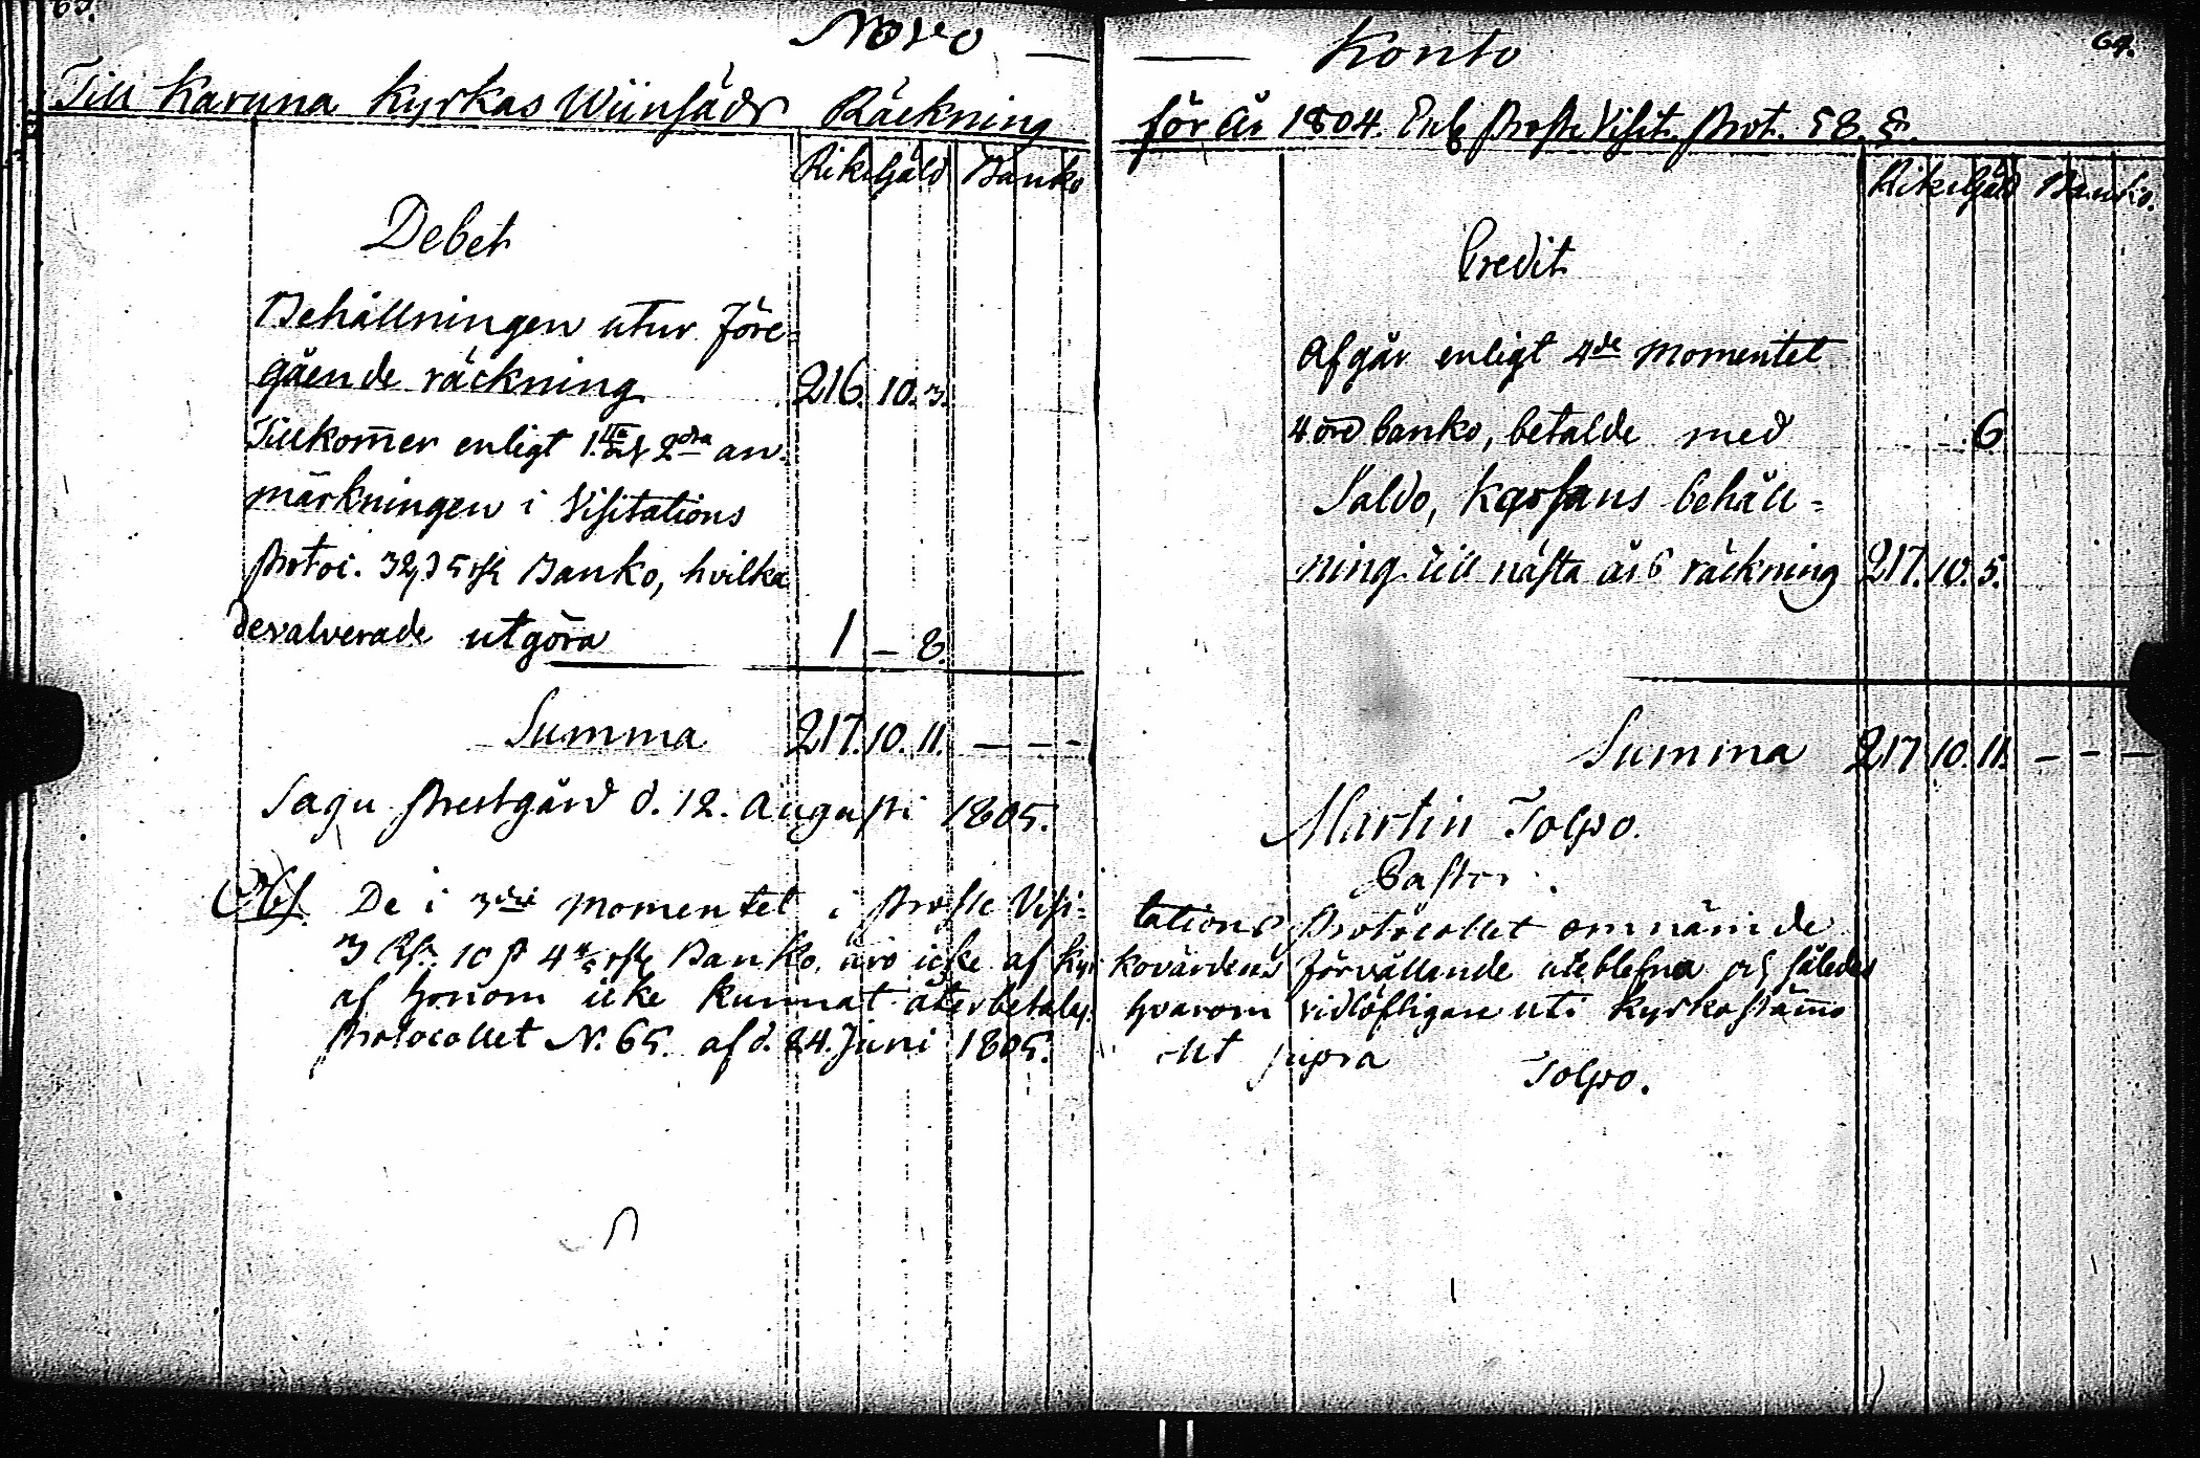 63.
Novo — — Konto
64.
Till Karuna Kyrkas Wiinsäds Räckning
för År 1804. Enl. Proste Visit. Prot. 58. §.
Riksgäld Banko
Debet
Behållningen utur före-
gående räckning 216. 10. 3.
Tillkom̄er enligt 1.sta & 2dra an-
märkningen i Visitations
Protoc. 32, 35 rst Banko, hvilka
devalverade utgöra 1 – 8.
Summa 217. 10. 11. – – –
Sagu Prestgård d. 12. Augusti 1805.
Riksgäld Banko.
Credit
Afgår enligt 4de Momentet
4 örd banko, betalde med – – 6
Saldo, Kassans behåll-
ning till nästa års räckning 217. 10. 5.
Summa 217 10. 11. – – –
Martin Tolpo.
Pastor.
Obs. De i 3dje Momentet i Proste Visi-
tations Protocollet omnämde
3 Rst. 10 ß 4 rst Banko, äro icke af Kyr-
kovärdens förvållande uteblefna och således
af honom icke kunnat återbetalas.
hvarom vidlöftigare uti Kyrkostäm̄o
Protocollet N. 65. af d. 24. Juni 1805.
Ut supra Tolpo.